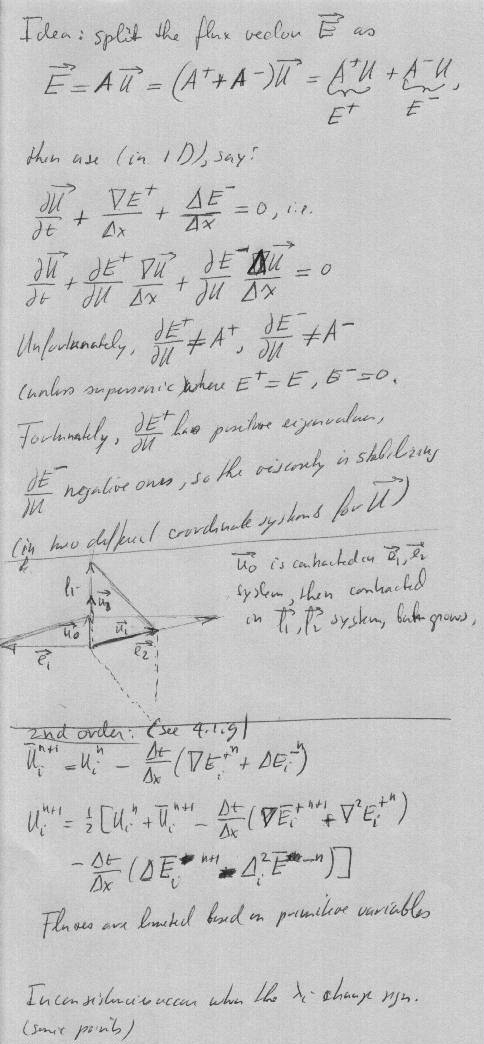 Idea: split the flux vector E⃗ as
E⃗ = A U⃗ = (A⁺ + A⁻) U⃗ = A⁺U + A⁻U,
E⁺ E⁻
then use (in 1D), say:
∂U⃗/∂t + ∇E⁺/Δx + ΔE⁻/Δx = 0, i.e.
∂U⃗/∂t + ∂E⁺/∂U ∇U⃗/Δx + ∂E⁻/∂U ΔU⃗/Δx = 0
Unfortunately, ∂E⁺/∂U ≠ A⁺, ∂E⁻/∂U ≠ A⁻
(unless supersonic) where E⁺ = E, E⁻ = 0.
Fortunately, ∂E⁺/∂U has positive eigenvalues,
∂E⁻/∂U negative ones, so the viscosity is stabilizing
(in two different coordinate systems for U⃗)
u⃗₀ is contracted in e⃗₁, e⃗₂
system, then contracted
in f⃗₁, f⃗₂ system, but grows.
f₁ u⃗₀ u⃗₁ e⃗₁ e⃗₂
2nd order: (see 4.1.9)
Ūᵢⁿ⁺¹ = Uᵢⁿ - Δt/Δx (∇Eᵢ⁺ⁿ + ΔEᵢ⁻ⁿ)
Uᵢⁿ⁺¹ = ½ [Uᵢⁿ + Ūᵢⁿ⁺¹ - Δt/Δx (∇Ēᵢ⁺ⁿ⁺¹ + ∇²Eᵢ⁺ⁿ)
- Δt/Δx (ΔĒᵢ⁻ⁿ⁺¹ - Δᵢ²E⁻ⁿ)]
Fluxes are limited based on primitive variables
Inconsistencies occur when the λᵢ change sign.
(sonic points)